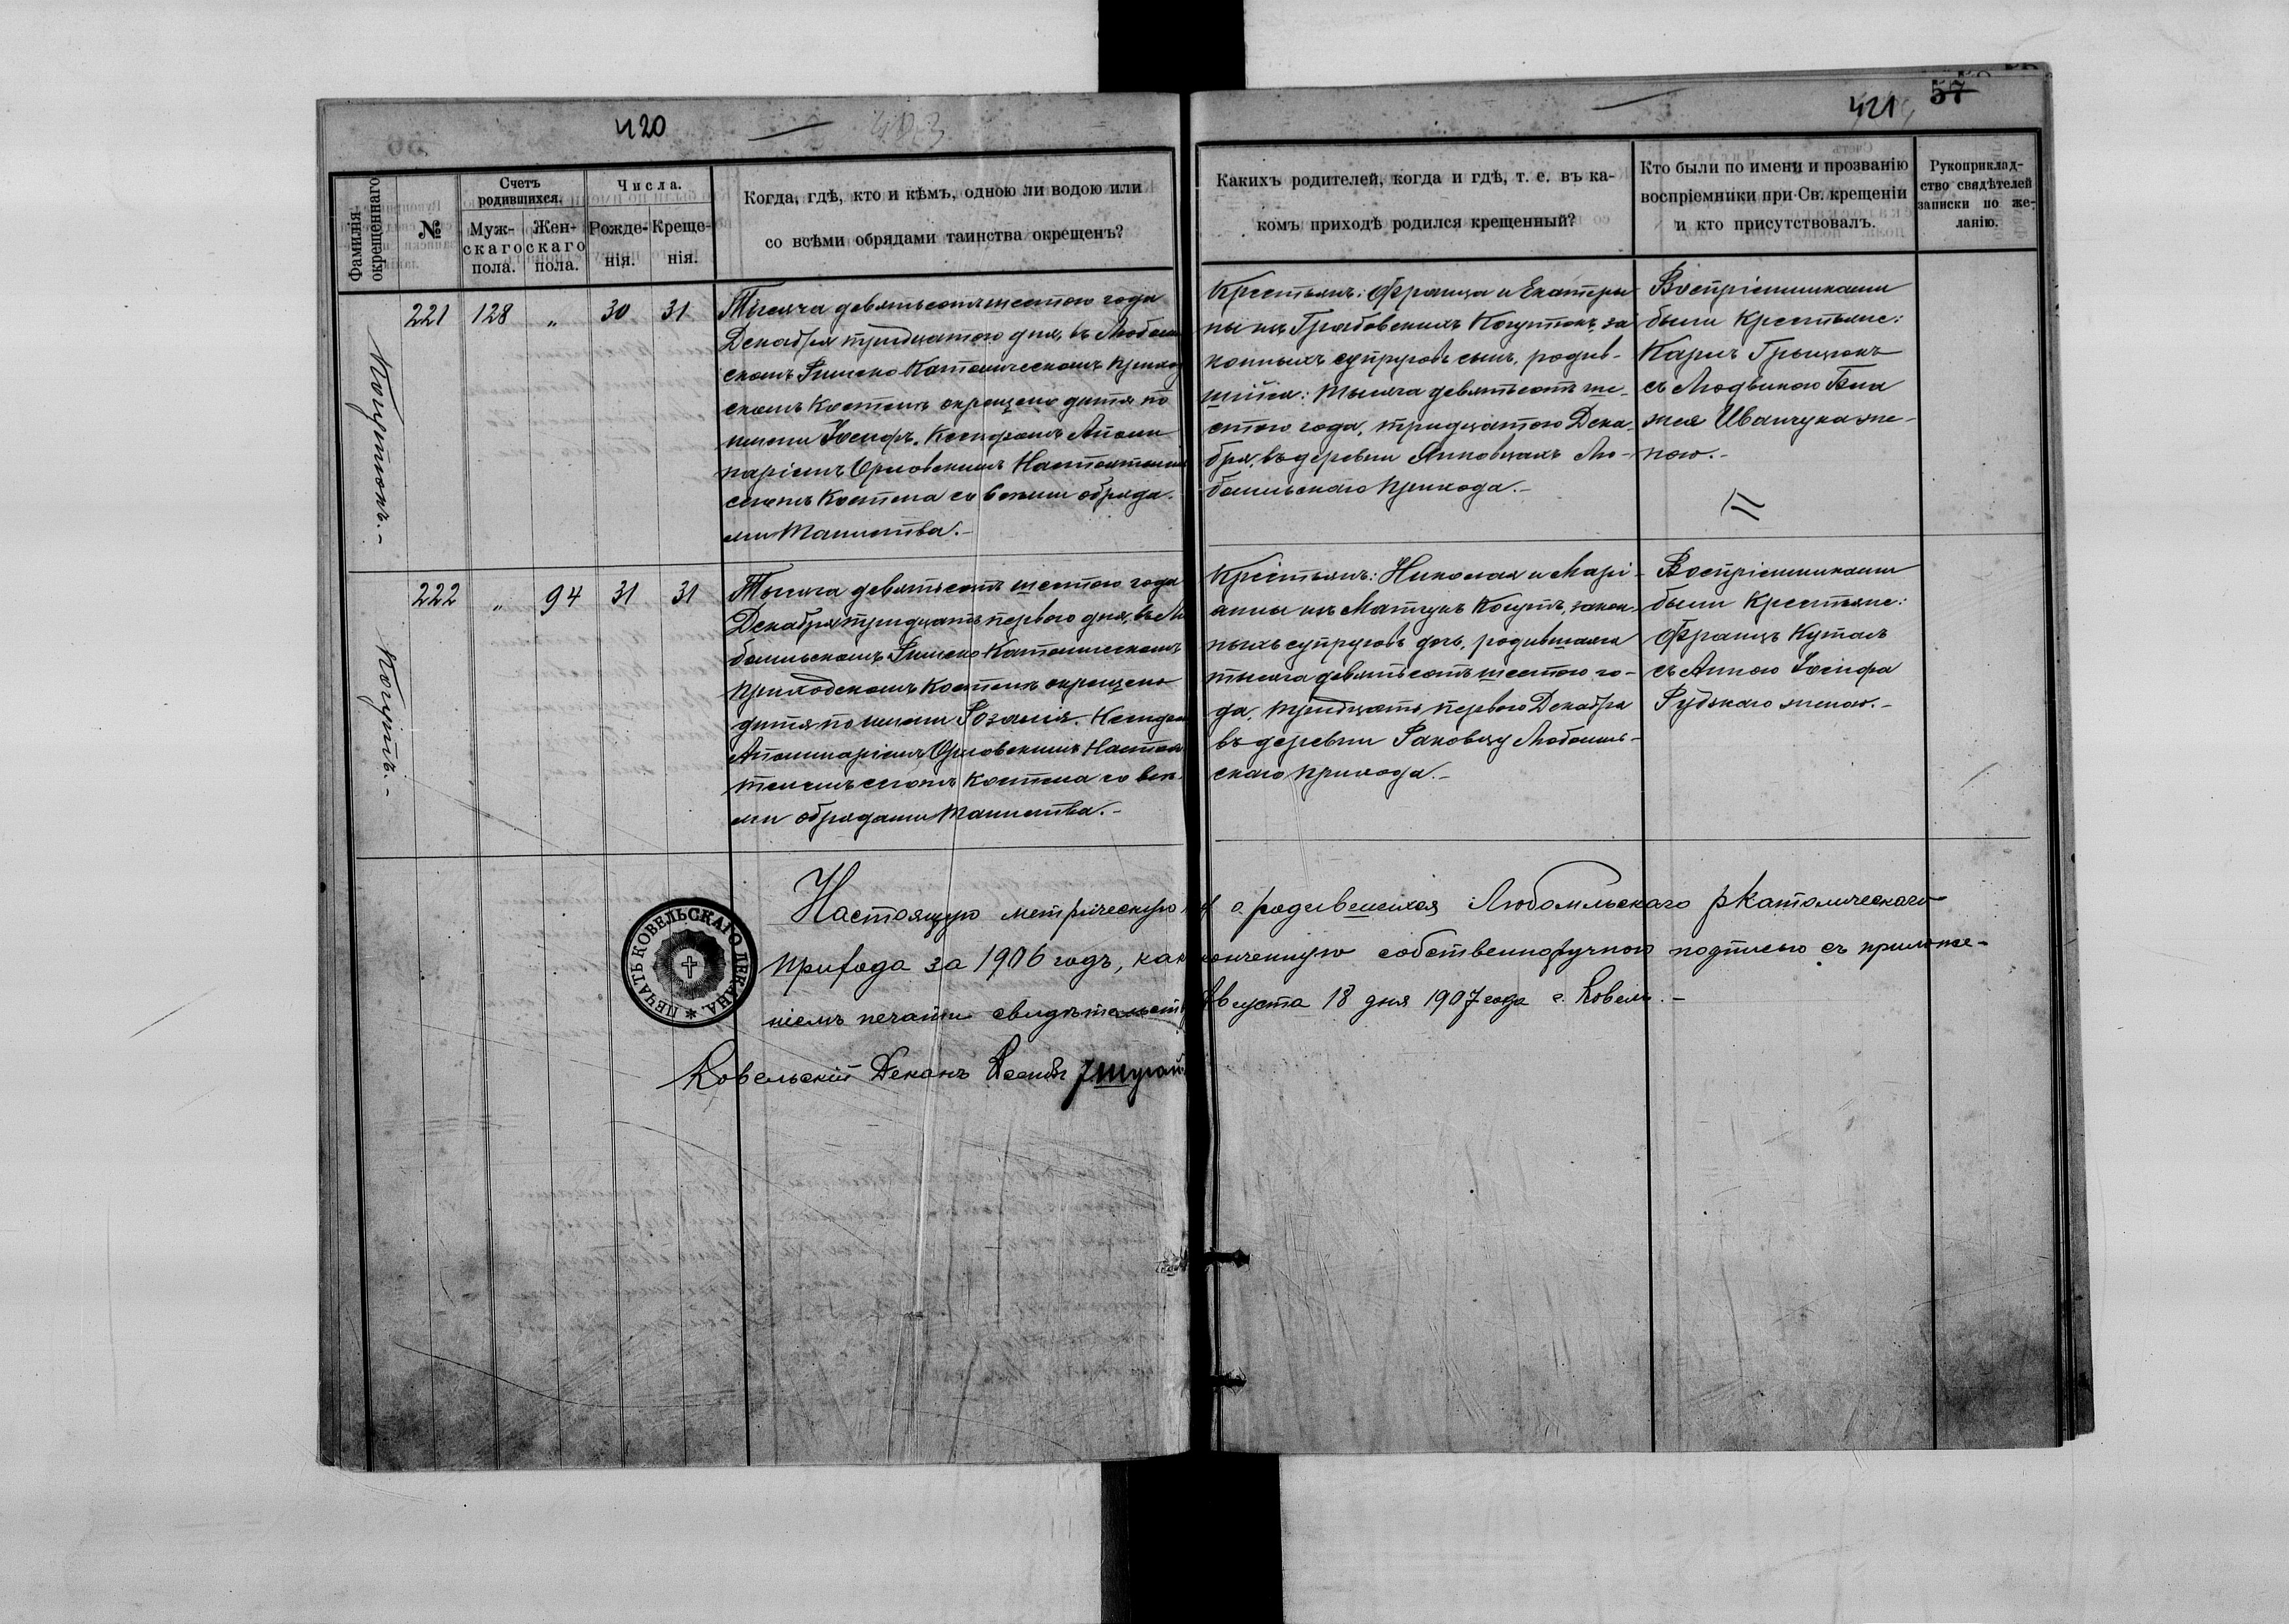 420
421
57
Фамилія окрещеннаго
№
Счетъ родившихся.
Муж-скаго пола.
Жен-скаго пола.
Числа.
Рожде-нія.
Креще-нія.
Когда, гдѣ, кто и кѣмъ, одною ли водою или
со всѣми обрядами таинства окрещенъ?
Какихъ родителей, когда и гдѣ, т. е. въ ка-
комъ приходѣ родился крещенный?
Кто были по имени и прозванію
воспріемники при Св. крещеніи
и кто присутствовалъ.
Рукоприклад-
ство свидѣтелей
записки по же-
ланію.
Когутюкъ.-
221 128 „ 30 31
Тысяча девятьсотъ шестого года
Декабря тридцатого дня, въ Любомль
скомъ Римско-Католическомъ Приход
скомъ Костелѣ окрещено дитя по
имени Іосифъ. Ксендзомъ Аполи
наріемъ Орловскимъ Настоятелем
сегожъ Костела со всѣми обряда-
ми Таинства.-
Крестьянъ: Франца и Екатери
ны изъ Грабовскихъ Когутюкъ, за
конныхъ супруговъ сынъ, родив-
шійся: тысяча девятьсотъ ше-
стого года, тридцатого Дека-
бря, въ деревни Янковцахъ Лю-
бомльскаго Прихода.-
Воспріемниками
были Крестьяне:
Карлъ Грыцюкъ
съ Людвикою Бла
жея Иванчука же-
ною.-
Когутъ.-
222 „ 94 31 31
Тысяча девятьсотъ шестого года
Декабря тридцать первого дня, въ Лю
бомльскомъ Римско-Католическомъ
Приходскомъ Костелѣ окрещено
дитя по имени Розалія. Ксендзом
Аполинаріемъ Орловскимъ Настоя
телемъ сегожъ Костела со всѣ-
ми обрядами Таинства.-
Крестьянъ: Николая и Марі-
анны изъ Матчукъ Когутъ, закон-
ныхъ супруговъ дочь, родившаяся
тысяча девятьсотъ шестого го-
да, тридцать первого Декабря
въ деревни Раковцу Любомль-
скаго Прихода.-
Воспріемниками
были Крестьяне:
Францъ Куталъ
съ Анною Іосифа
Рудзкаго женою.-
Настоящую метрическую о родившихся Любомльскаго рКатолическаго
прихода за 1906 годъ, как конченную собственноручною подписью съ приложе-
ніемъ печати свидѣтельств Августа 18 дня 1907 года г. Ковель.-
Ковельскій Деканъ Ксендзъ
ПЕЧАТЬ КОВЕЛЬСКАГО ДЕКАНА.